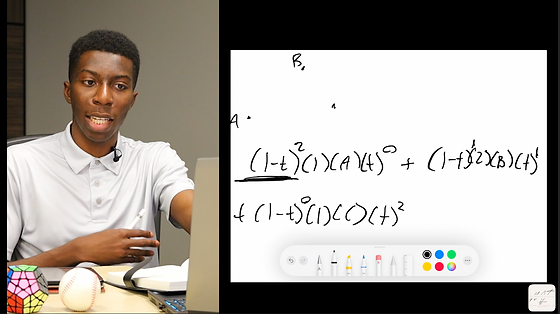 B.
A.
(1-t)²(1)(A)(t)⁰ + (1-t)¹(2)(B)(t)¹
+ (1-t)⁰(1)(C)(t)²